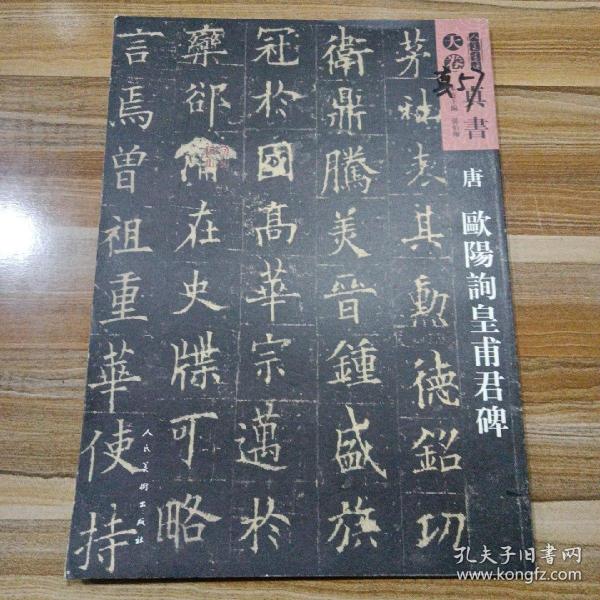 大卷
真書
唐 歐陽詢皇甫君碑
茅社表其勳德銘功
衛鼎騰美晉鍾盛族
冠於國高華宗邁於
欒郤備在史牒可略
言焉曾祖重華使持
人民美術出版社
孔夫子旧書网
www.kongfz.com